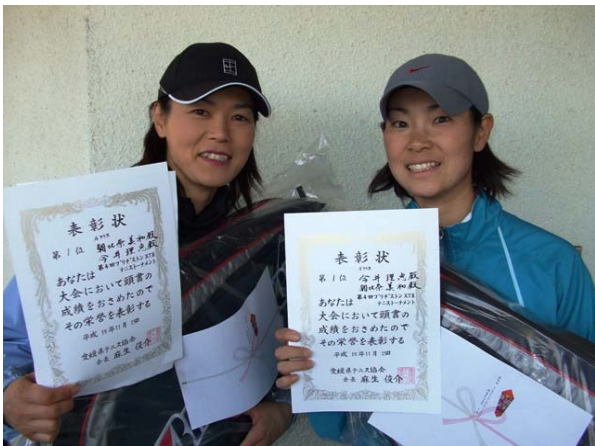 表彰状
Aクラス
第1位 朝比奈美和殿
今井理恵殿
第4回ブリヂストンXTR
テニストーナメント
あなたは
大会において頭書の
成績をおさめたので
その栄誉を表彰する
平成19年11月2日
愛媛県テニス協会
会長 麻生俊介
表彰状
Aクラス
第1位 今井理恵殿
朝比奈美和殿
第4回ブリヂストンXTR
テニストーナメント
あなたは
大会において頭書の
成績をおさめたので
その栄誉を表彰する
平成19年11月2日
愛媛県テニス協会
会長 麻生俊介